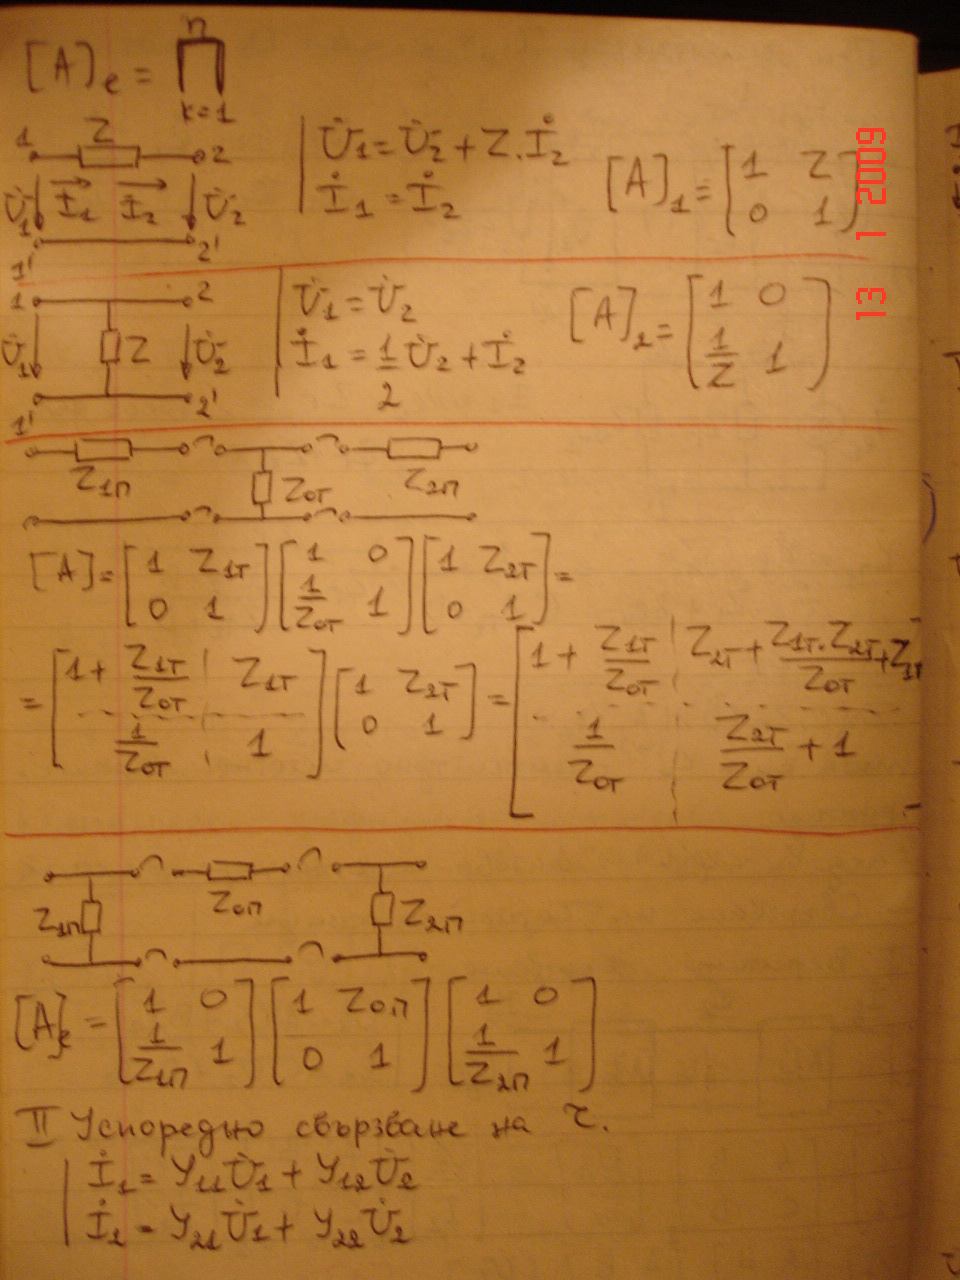 [A]e = ∏ n k=1
1 Z 2
U̇1 İ1 İ2 U̇2
1' 2'
U̇1 = U̇2 + Z.İ2
İ1 = İ2
[A]1 = [1 Z; 0 1]
13 1 2009
1 2
U̇1 Z U̇2
1' 2'
U̇1 = U̇2
İ1 = 1/2 U̇2 + İ2
[A]2 = [1 0; 1/Z 1]
Z1П Z0Т Z2П
[A] = [1 Z1Т; 0 1] [1 0; 1/Z0Т 1] [1 Z2Т; 0 1] =
= [1 + Z1Т/Z0Т Z1Т; 1/Z0Т 1] [1 Z2Т; 0 1] = [1 + Z1Т/Z0Т Z2Т + Z1Т.Z2Т/Z0Т + Z1Т; 1/Z0Т Z2Т/Z0Т + 1]
Z1П Z0П Z2П
[A]e = [1 0; 1/Z1П 1] [1 Z0П; 0 1] [1 0; 1/Z2П 1]
II Успоредно свързване на
İ1 = Y11U̇1 + Y12U̇2
İ2 = Y21U̇1 + Y22U̇2